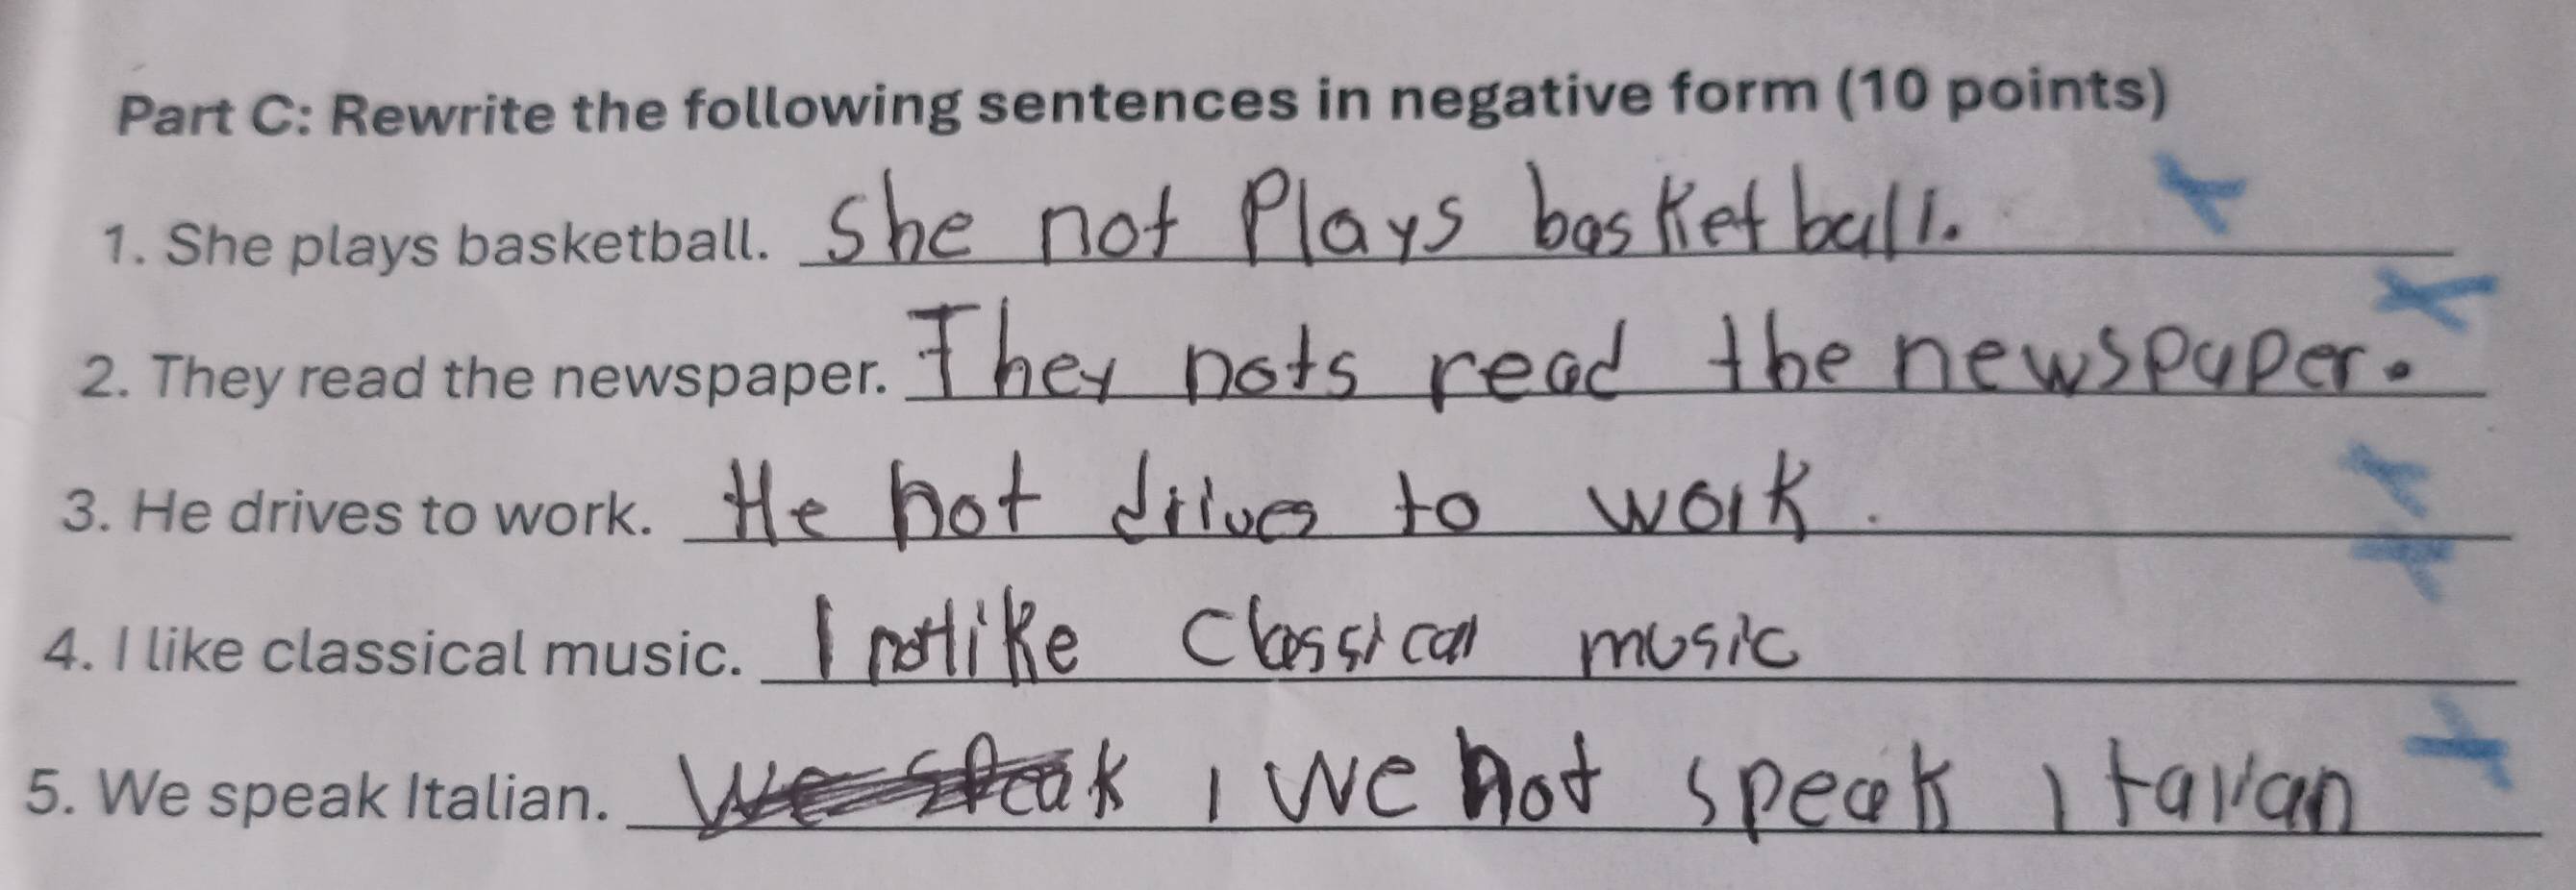 Part C: Rewrite the following sentences in negative form (10 points)
1. She plays basketball. She not Plays basketball.
2. They read the newspaper. They nots read the newspaper.
3. He drives to work. He not drives to work.
4. I like classical music. I not like Classical music
5. We speak Italian. We speak, We not speak Italian